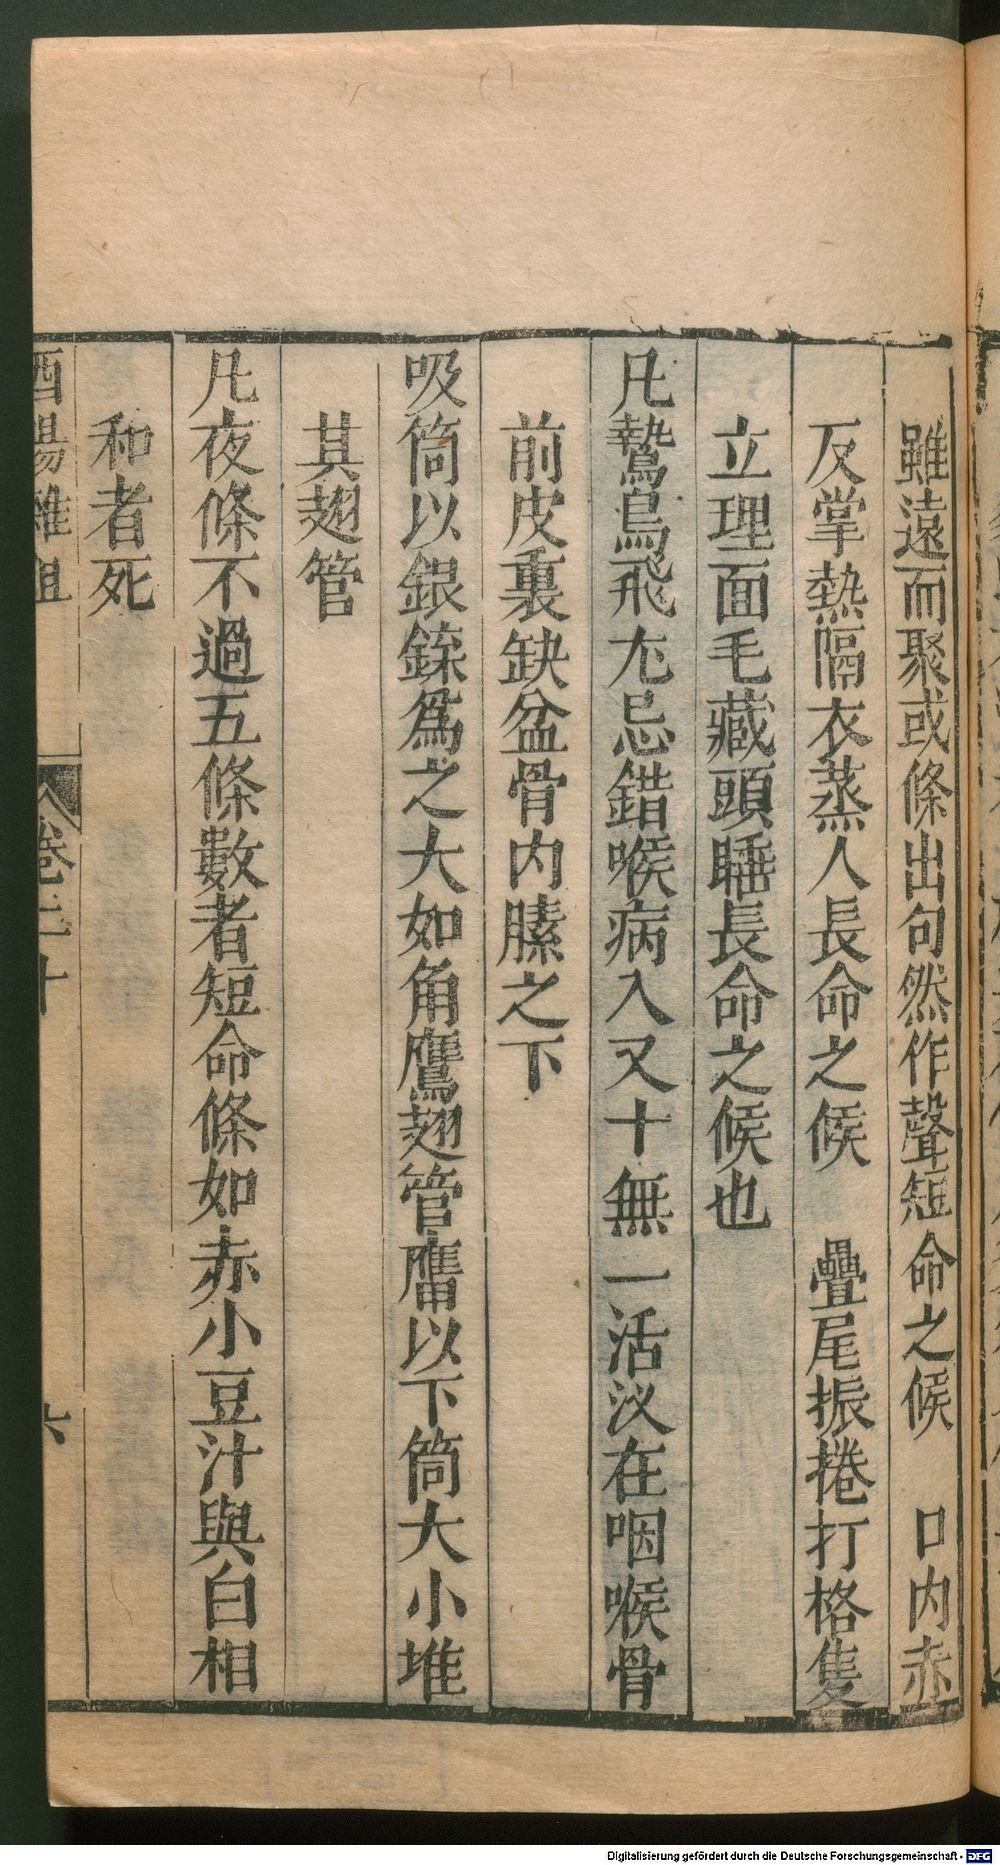 雖遠而聚或條出句然作聲短命之候　口内赤
反掌熱隔衣蒸人長命之候　疊尾振捲打格隻
立理面毛藏頭睡長命之候也
凡鷙鳥飛尤忌錯喉病入叉十無一活汊在咽喉骨
前皮裏缺盆骨内膆之下
吸筒以銀鍱爲之大如角鷹翅管鷹以下筒大小堆
其翅管
凡夜條不過五條數者短命條如赤小豆汁與白相
和者死
酉陽雜俎
卷二十
六
Digitalisierung gefördert durch die Deutsche Forschungsgemeinschaft - DFG